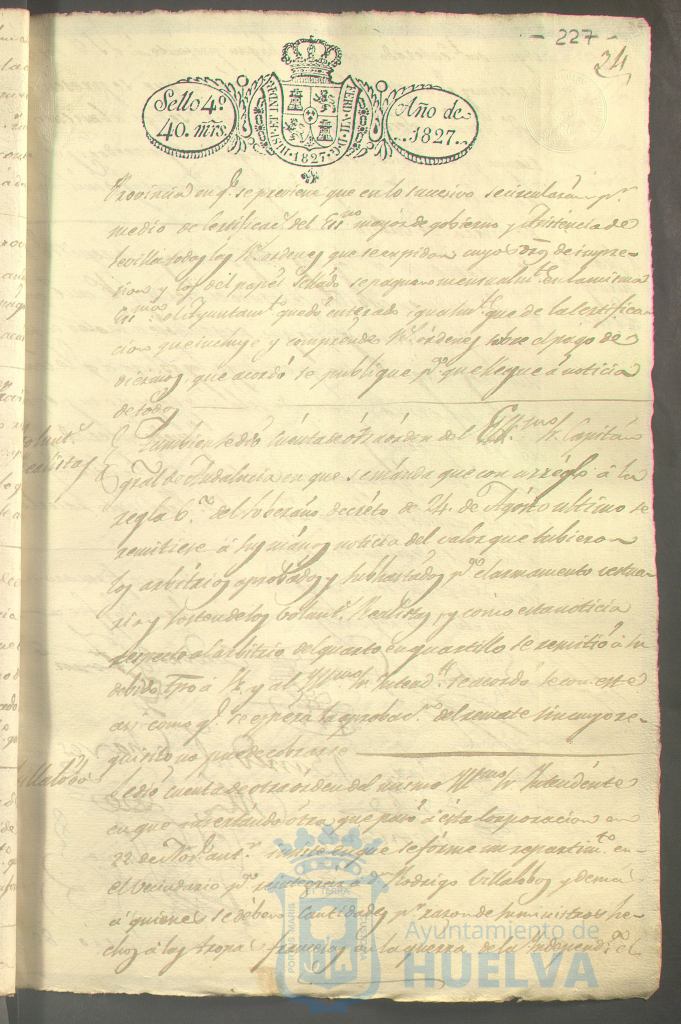 - 227 -
24
Sello 4º
40. mrs.
FERD. VII. D. G.
HISP. ET IND. R. 1827.
Año de
1827.
Provincia en qe. se previene que en lo sucesivo se circularan pr.
medio de Certificacn. del Essno. mayor de gobierno y Asistencia de
Sevilla todas las Rs. ordenes que se expidan cuyos dros. de impre-
sion y los del papel Sellado se paguen mensualmte. en la misma
Essnia. el Ayuntamto. quedó enterado igualmte. que de la Certifica
cion que incluye y comprende Rs. órdenes sobre el pago de
Diezmos, que acordó se publique pa. que llegue á noticia
de todos
Tambien se dió cuenta de otra órden del Exmo. Sr. Capitán
Gral. de Andalucia en que se manda que con arreglo á la
regla 6.ª del soberano decréto de 24. de Agosto ultimo se
remitiese á sus manos noticia del valor que tubieron
los arbitrios aprobados y subhastados pa. el armamento vestua-
rio y Realistas, y como esta noticia
respecto al arbitrio del quarto en quartillo se remitió á su
debido tpo. á S.E. y al Sr. Intendte. se acordó se conteste
asi como qe. se espera la aprobacn. del remate sin cuyo re-
quisito no puede cobrarse
Se dió cuenta de otra órden del mismo Sr. Intendente
en que insertando otra que pasó á esta Corporacion en
22 de Nobe. antr. insiste en que se forme un repartimto. en
el Vecindario pa. reintegrar á Dn. Rodrigo Villalobos y demas
á quienes se deben Cantidades pr. razon de suministros he-
chos á las tropas francesas en la guerra de la Independa. el
Volunts.
Realistas
Villalobos
PORTUS MARIS
ET TERRÆ
Ayuntamiento de
HUELVA